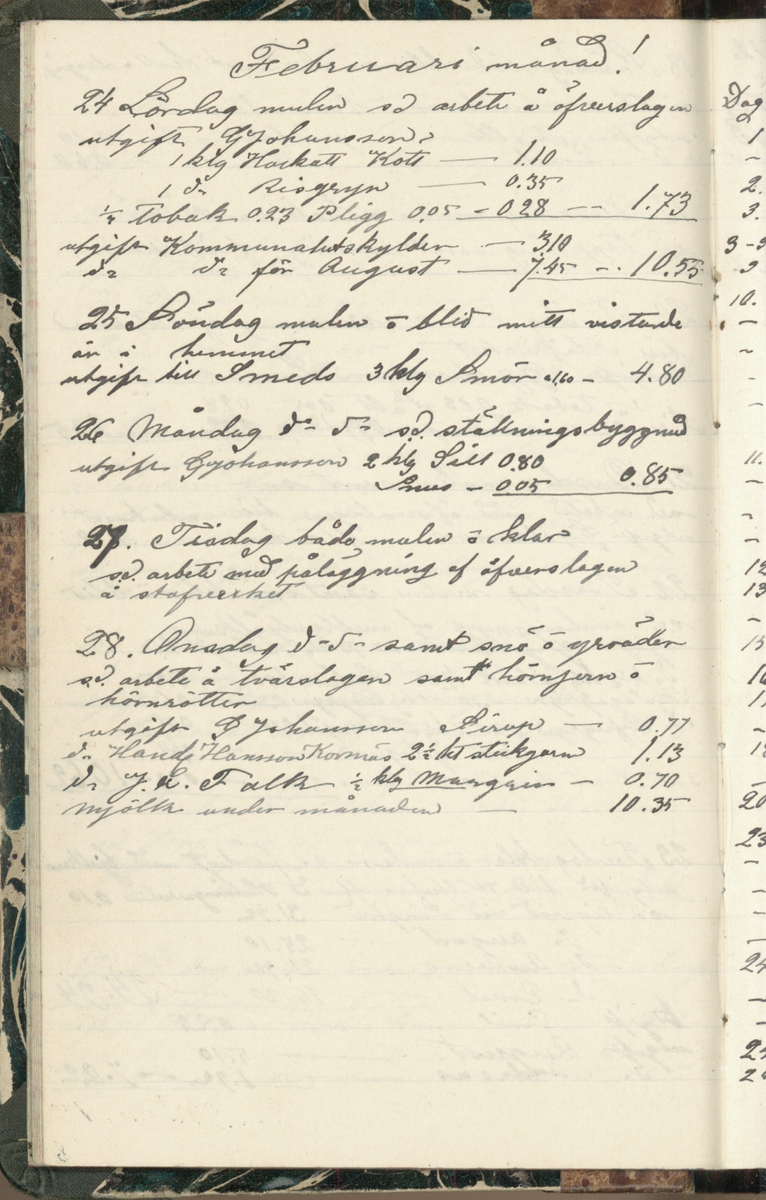 Februari månad!
24 Lördag mulen s.d arbete å öfverslagen
utgift GJohansson:
1 klg Hackatt Kött — 1.10
1 do Risgryn — 0.35
½ Tobak 0.23 Pligg 0.05 - 0.28 — 1.73
utgift Kommunalutskylder — 3.10
do do för August — 7.45 — 10.55
25 Söndag mulen o blid mitt vistande
är i hemmet
utgift till Smeds 3 klg Smör à 1,60 - 4.80
26 Måndag do do s.d. ställningsbyggnad
utgift GJohansson 2 klg Sill 0.80
Snus - 0.05 0.85
27. Tisdag både mulen o klar
s.d. arbete med påläggning af öfverslagen
å stafverket
28. Onsdag do do samt snö o yrväder
s.d. arbete å tvärslagen samt hörnjern o
hörnrötter
utgift GJohansson Sirap — 0.77
do Hansson Kornäs 2½ kt 1.13
do J.E. Falk ½ klg Margrin — 0.70
Mjölk under månaden — 10.35
Dag
1
2.
3.
10.
11.
12
13
15
16
20
23
24